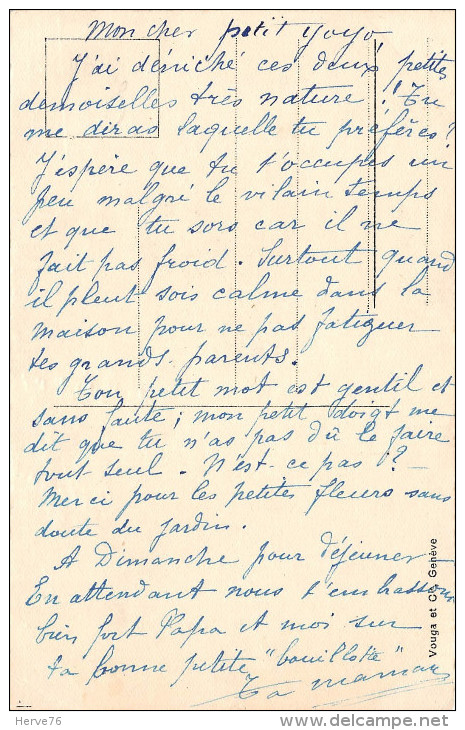 Mon cher petit Yoyo
J'ai déniché ces deux petites
demoiselles très nature ! Tu
me diras laquelle tu préfères ?
J'espère que tu t'occupes un
peu malgré le vilain temps
et que tu sors car il ne
fait pas froid. Surtout quand
il pleut sois calme dans la
maison pour ne pas fatiguer
tes grands-parents.
Ton petit mot est gentil et
sans faute ; mon petit doigt me
dit que tu n'as pas dû le faire
tout seul - N'est-ce pas ? -
Merci pour les petites fleurs sans
doute du jardin.
A Dimanche pour déjeuner
En attendant nous t'embrassons
bien fort Papa et moi sur
ta bonne petite "bouillotte"
Ta maman
Vouga et Co, Genève
Herve76